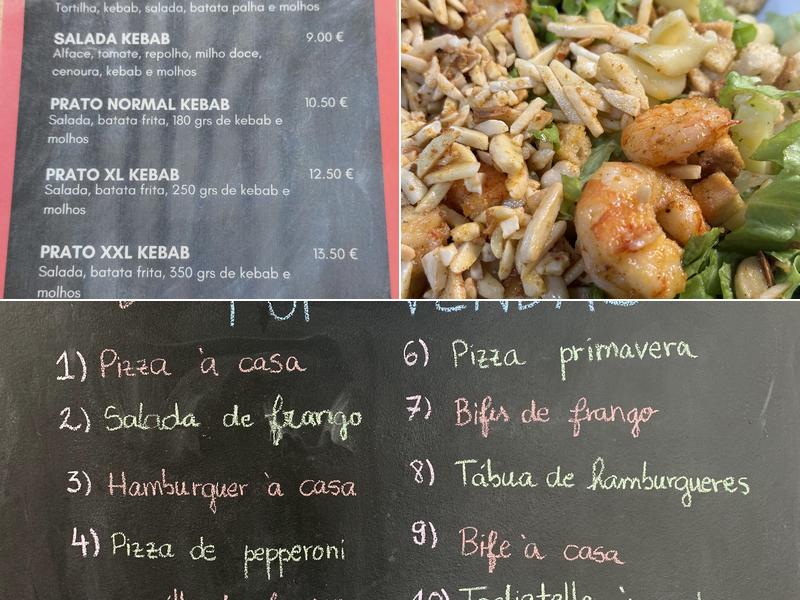 Tortilha, kebab, salada, batata palha e molhos
SALADA KEBAB 9.00 €
Alface, tomate, repolho, milho doce,
cenoura, kebab e molhos
PRATO NORMAL KEBAB 10.50 €
Salada, batata frita, 180 grs de kebab e
molhos
PRATO XL KEBAB 12.50 €
Salada, batata frita, 250 grs de kebab e
molhos
PRATO XXL KEBAB 13.50 €
Salada, batata frita, 350 grs de kebab e
molhos
1) Pizza à casa
2) Salada de frango
3) Hamburguer à casa
4) Pizza de pepperoni
6) Pizza primavera
7) Bifes de frango
8) Tábua de hamburgueres
9) Bife à casa